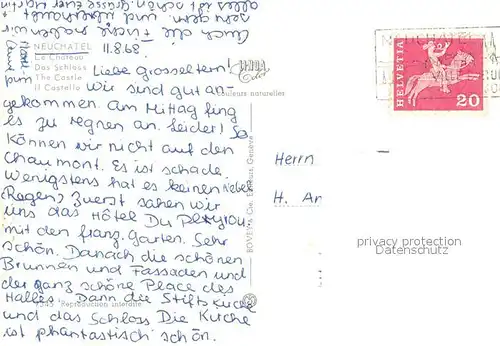 alles ist schön. Grüsse Euer Martin
sein dem. und überhaupt
Auch die Füsse
11.8.68
NEUCHATEL
Le Château
Das Schloss
The Castle
Il Castello
couleurs naturelles
Liebe Grosseltern!
Wir sind gut an-
gekommen. Am Mittag fing
es zu regnen an. Leider! So
können wir nicht auf den
Chaumont. Es ist schade
Wenigstens hat es keinen Nebel
(Regen) Zuerst sahen wir
uns das Hôtel Du Peyrou
mit den franz. Garten. Sehr
schön. Danach die schönen
Brunnen und Fassaden und
der ganz schöne Place des
Halles. Dann die Stiftskirche
und das Schloss Die Kirche
ist phantastisch schön.
7345 Reproduction interdite
NEUCHATEL
HELVETIA
20
Herrn
H. Ar
privacy protection
watermark